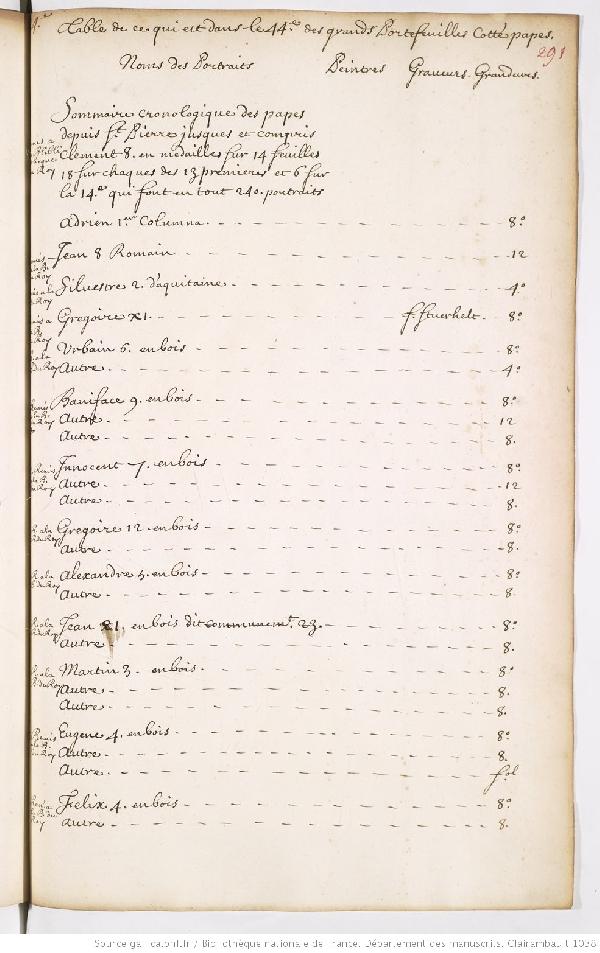 Table de ce qui est dans le 44.e des grands Portefeuilles Cotté papes.
291
Noms des Portraits Peintres Graveurs. Grandeurs.
Sommaire cronologique des papes
depuis St. Pierre jusques et compris
Clement 8. en medailles sur 14 feuilles
18 sur chaques des 13 premieres et 6 sur
la 14.e qui font en tout 240. portraits
Adrien 1.er Columna. 8.o
Jean 8 Romain 12
Silvestre 2. d'aquitaine 4.o
Gregoire XI. 8.o
Urbain 6. en bois 8.o
Autre 4.o
Boniface 9. en bois 8.o
Autre 12
Autre 8.
Innocent 7. en bois 8.o
Autre 12
Autre 8.
Gregoire 12. en bois 8.o
Autre 8.
Alexandre 5. en bois 8.o
Autre 8
Jean 21. en bois dit communem.t 23. 8.o
Autre 8.
Martin 3. en bois. 8.o
Autre 8.
Autre 8.
Eugene 4. en bois 8.o
Autre 8.
Autre fol
Felix 4. en bois 8.o
Autre 8.
Source gallica.bnf.fr / Bibliothèque nationale de France. Département des manuscrits. Clairambault 1038